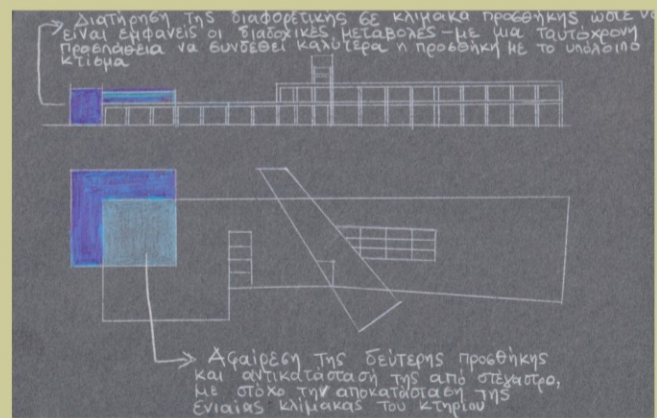 Διατήρηση της διαφορετικής σε κλίμακα προσθήκης ώστε ν
είναι εμφανείς οι διαδοχικές μεταβολές - με μια ταυτόχρονη
προσπάθεια να συνδεθεί καλύτερα η προσθήκη με το υπόλοιπο
κτίσμα
Αφαίρεση της δεύτερης προσθήκης
και αντικατάστασή της από στέγαστρο,
με στόχο την αποκατάσταση της
ενιαίας κλίμακας του κτηρίου